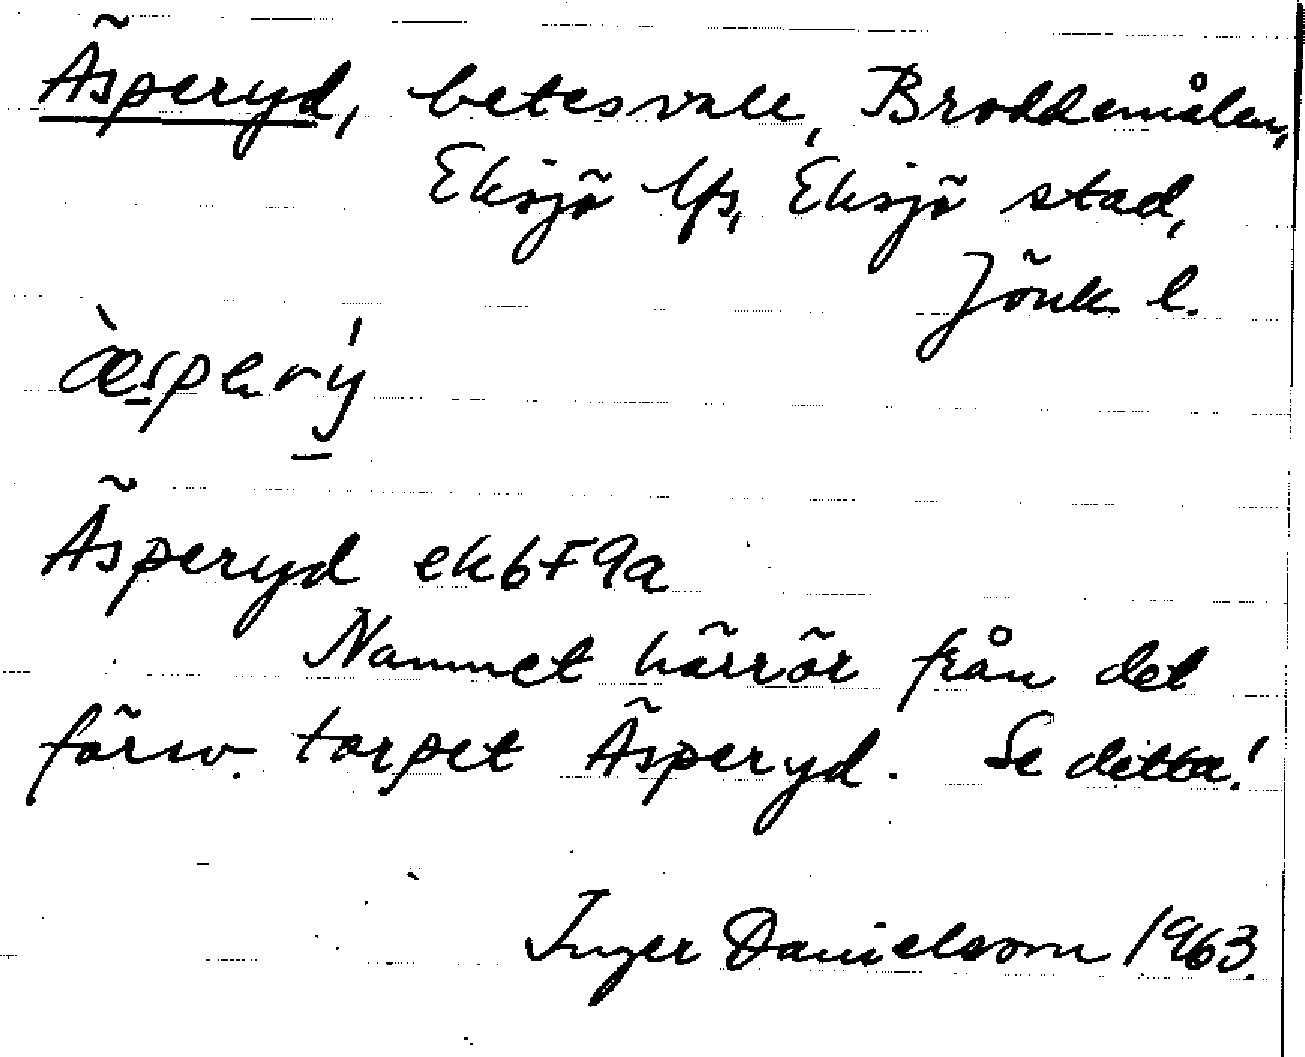 Äsperyd, betesvall, Broddemålen,
Eksjö lfs, Eksjö stad,
Jönk. l.
æ̀sperý
Äsperyd ek6F9a
Namnet härrör från det
försv. torpet Äsperyd. Se detta!
Inger Danielsson 1963.